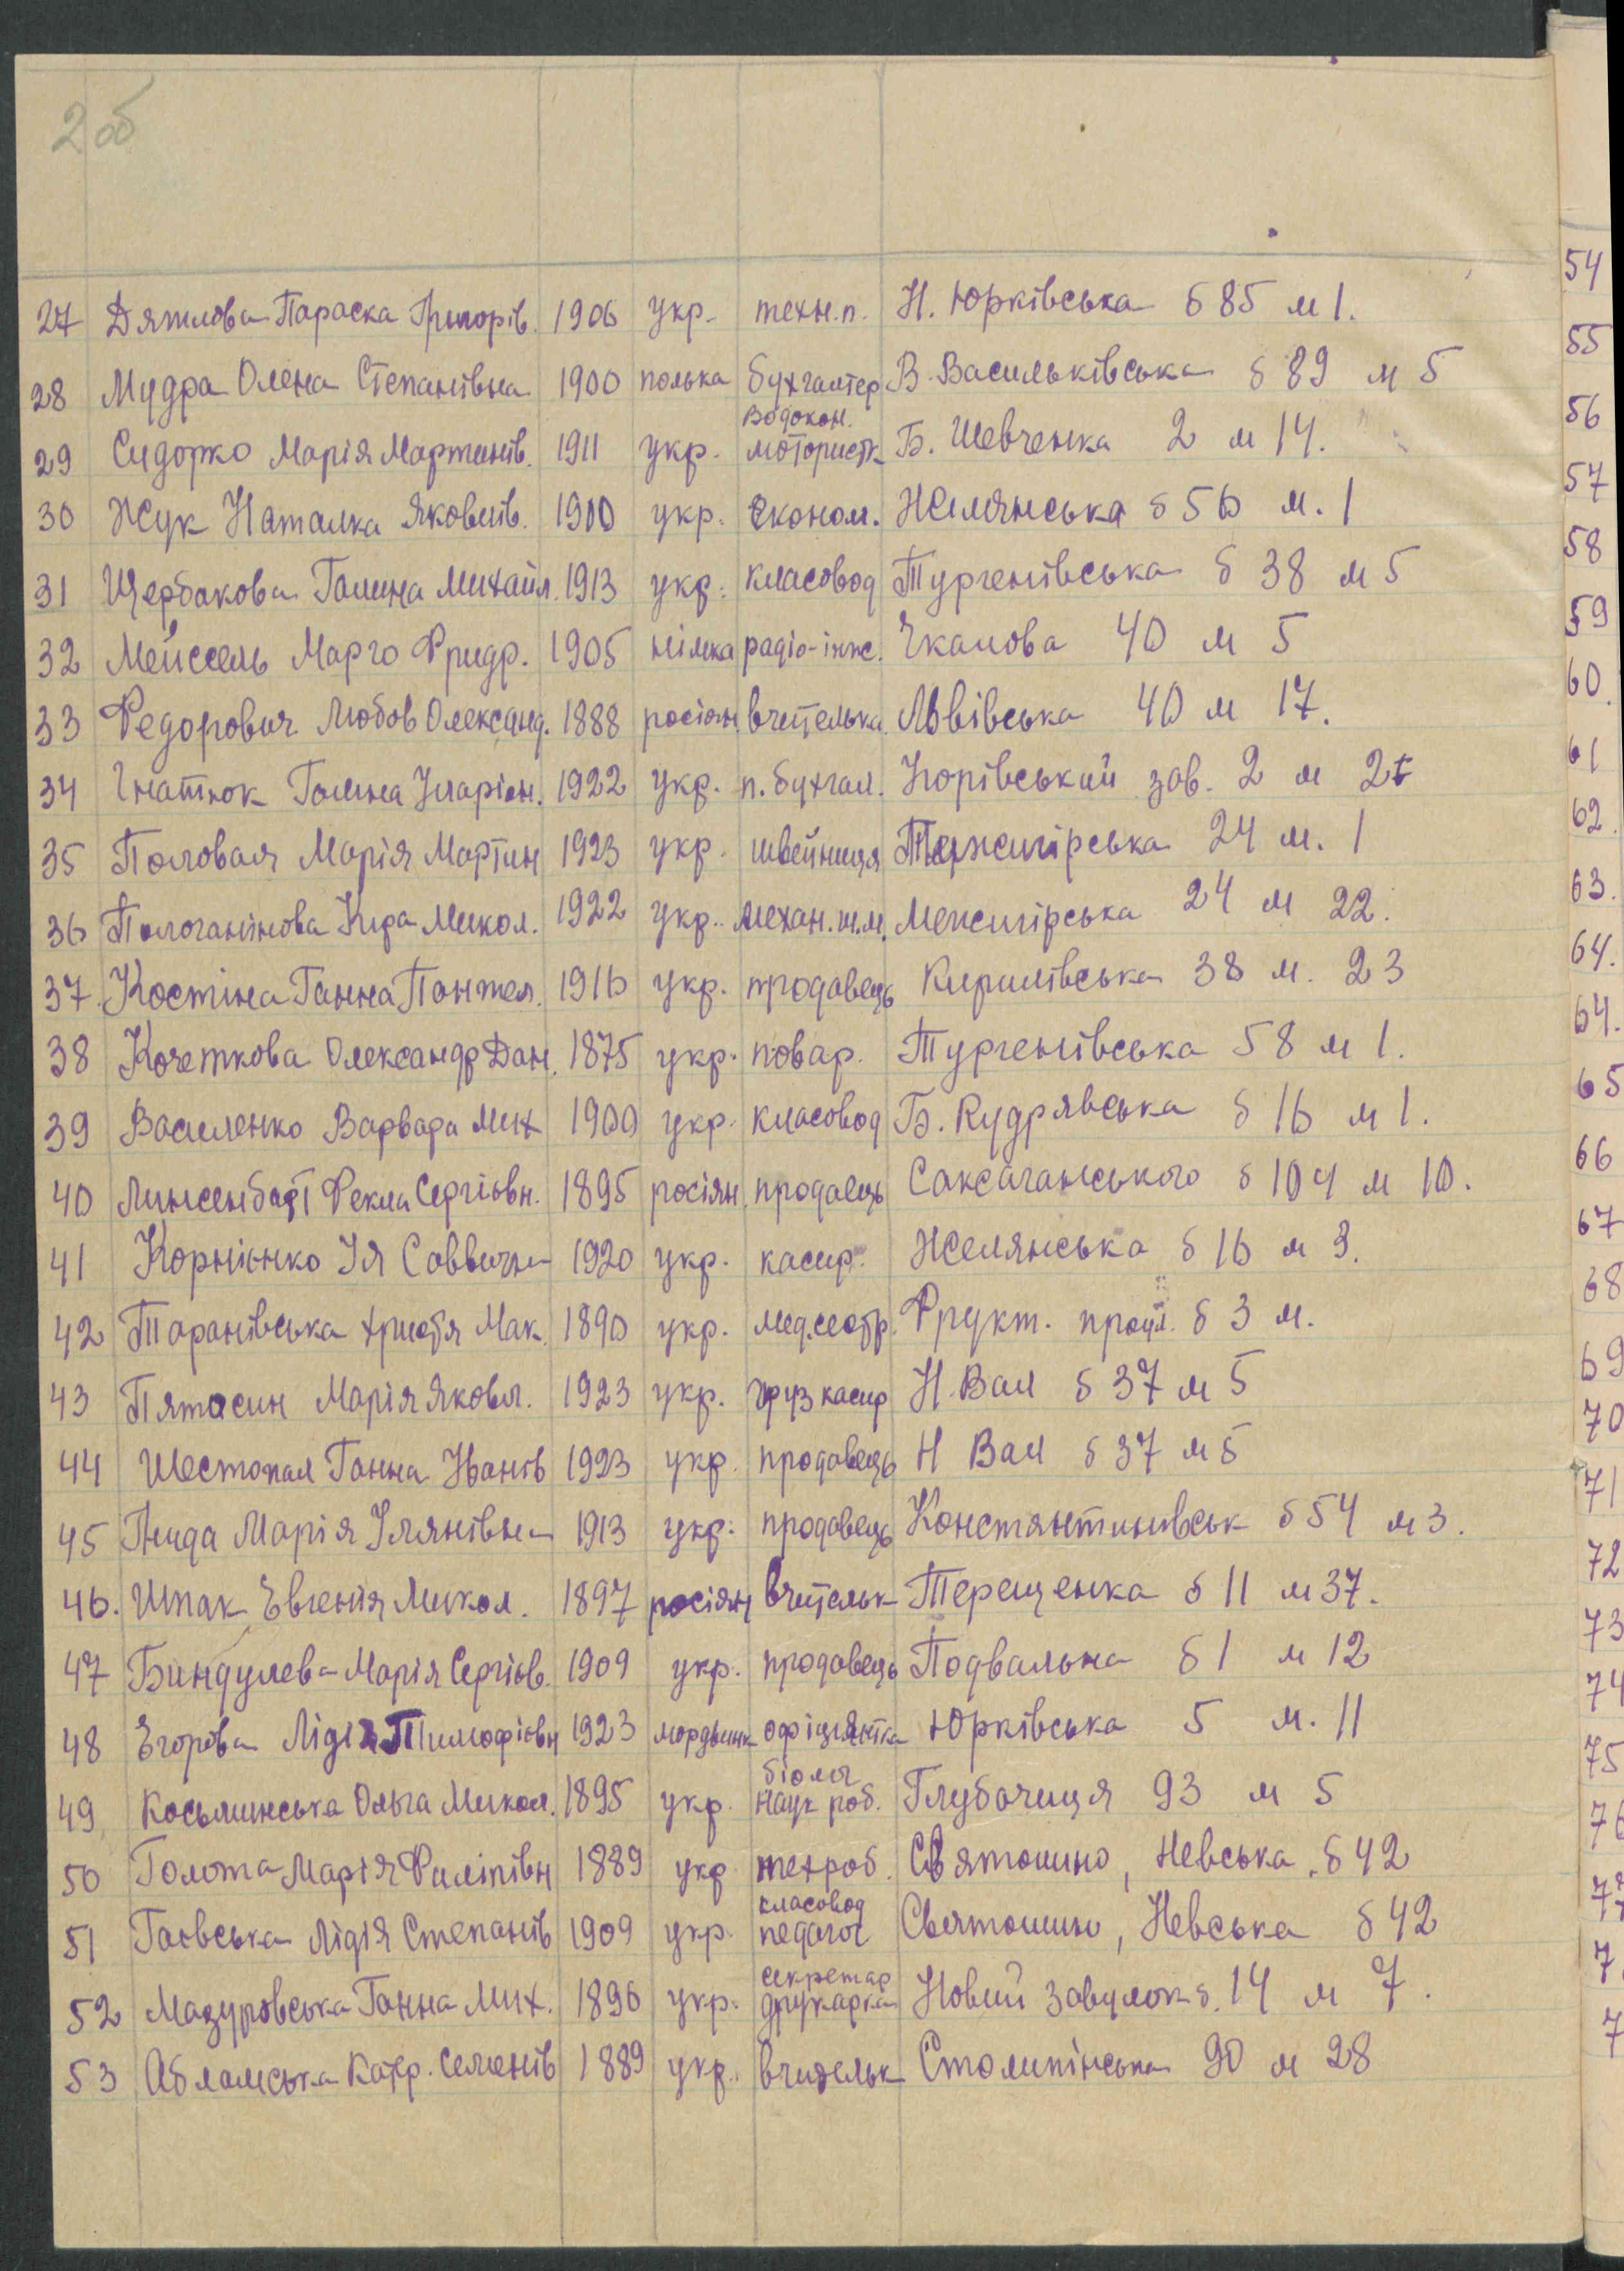 2 об
27 Дятлова Параска Григорів. 1906 укр. техн.п. Н. Юрківська б 85 м 1.
28 Мудра Олена Степанівна 1900 полька бухгалтер В. Васильківська б 89 м 5
29 Сидорко Марія Мартинів. 1911 укр. Водокан. мотористк Б. Шевченка 2 м 14.
30 Жук Наталка Яковлів. 1910 укр. економ. Жилянська б 56 м. 1
31 Щербакова Галина Михайл. 1913 укр. класовод Тургенівська б 38 м 5
32 Мейссель Марго Фридр. 1905 німка радіо-інж. Чкалова 40 м 5
33 Федорович Любов Олександ. 1888 росіян вчителька Львівська 40 м 17.
34 Гнатюк Галина Іларіон. 1922 укр. п. бухгал. зав. 2 м
35 Половая Марія Мартин 1923 укр. швейниця 24 м. 1
36 Кіра Микол. 1922 укр. механ. ш.м. Межигірська 24 м 22.
37 Костіна Ганна Пантел. 1916 укр. продавець Кирилівська 38 м. 23
38 Кочеткова Олександр Дан. 1875 укр. повар. Тургенівська 58 м 1.
39 Василенко Варвара Мих 1900 укр. класовод Б. Кудрявська б 16 м 1.
40 Фекла Сергіївн. 1895 росіян. продавець Саксаганського б 104 м 10.
41 Корнієнко Ія Саввична 1920 укр. касир. Желянська б 16 м 3.
42 Таранівська Христя Мак. 1890 укр. мед.сестр. Фрукт. б 3 м.
43 Пятасин Марія Яковл. 1923 укр. груз касир Н. Вал б 37 м 5
44 Шестопал Ганна Іванів 1923 укр. продавець Н Вал б 37 м 5
45 Гнида Марія Улянівна 1913 укр. продавець Константинівськ б 54 м 3.
46. Шпак Євгенія Микол. 1897 росіян вчительк Терещенка б 11 м 37.
47 Биндулева Марія Сергіїв. 1909 укр. продавець Подвальна б 1 м 12
48 Єгорова Лідія Тимофіївн 1923 мордвинк офіціянтка Юрківська 5 м. 11
49 Косьминська Ольга Микол. 1895 укр. біолог наук роб. Глубочиця 93 м 5
50 Голота Марія Филіпівн 1889 укр техроб. Святошино, Невська. б 42
51 Гаєвська Лідія Степанів 1909 укр. класовод педагог Святошино, Невська б 42
52 Мазуровська Ганна Мих. 1896 укр. секретар друкарка Новий завулок б. 14 м 7.
53 Абламська Катр. Семенів 1889 укр. вчительк Столипінська 90 м 28
54
55
56
57
58
59
60.
61
62.
63.
64.
64.
65
66
67
68
69
70
71
72
73
74
75